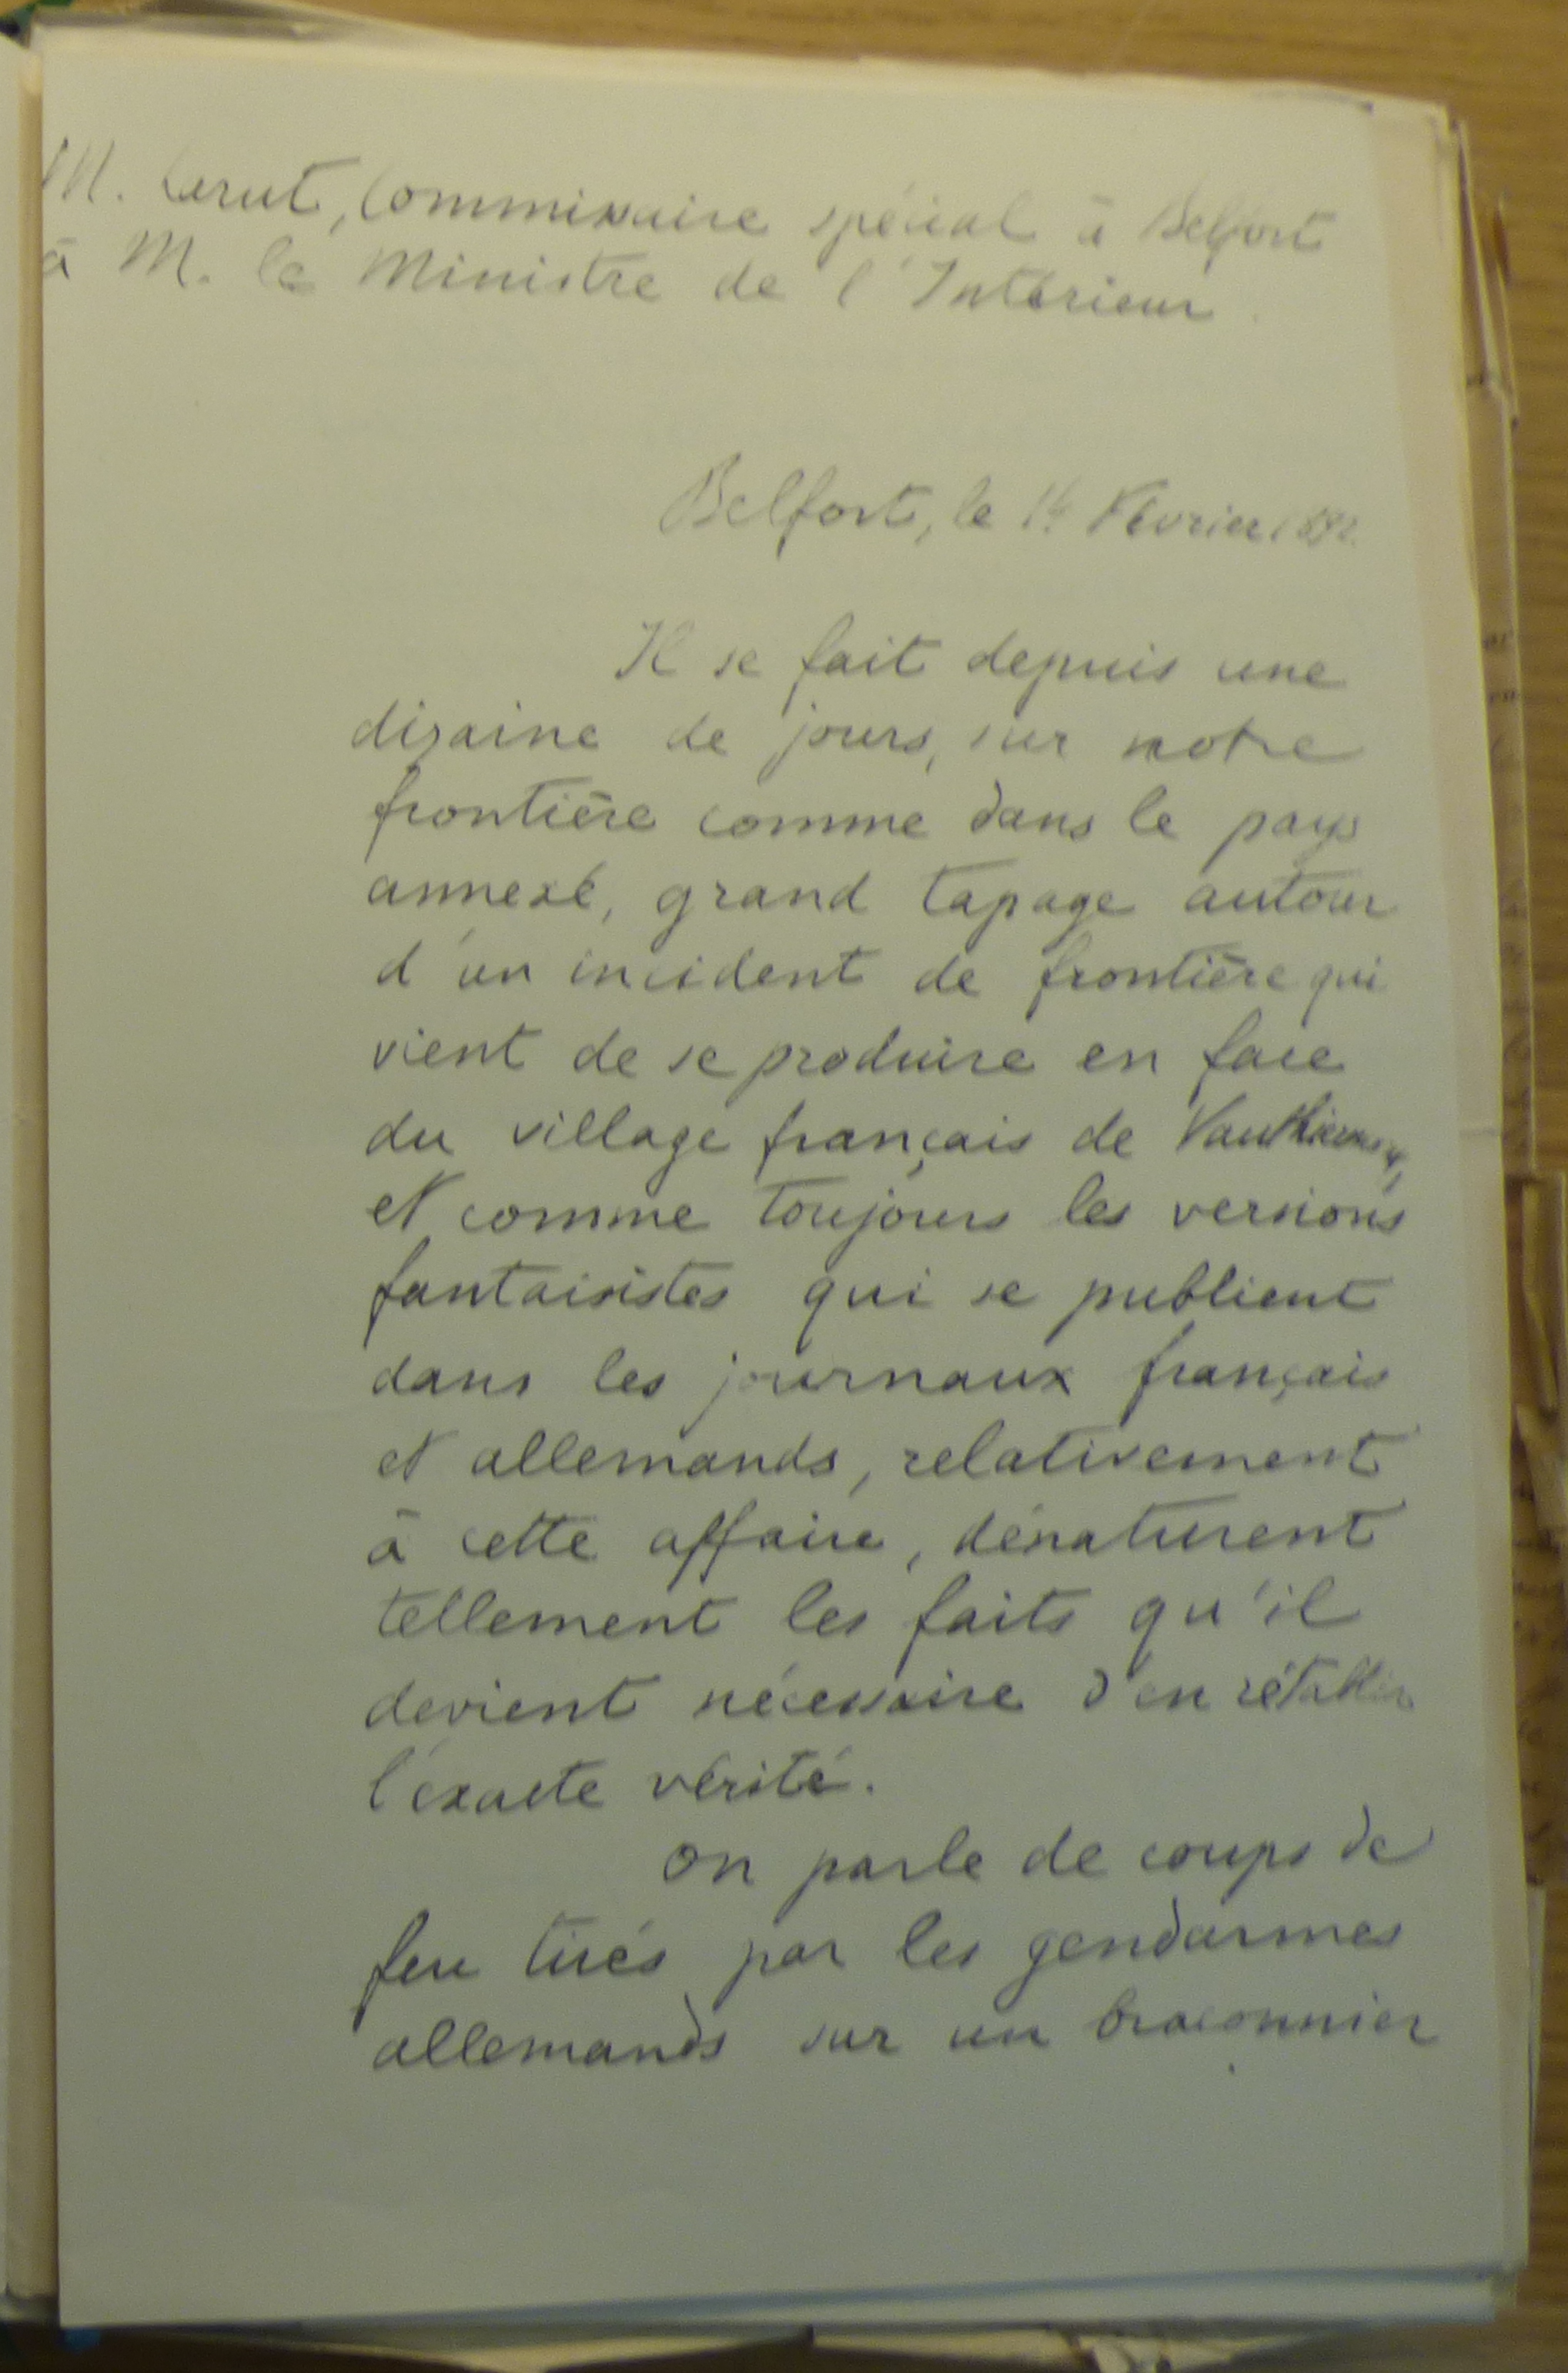 M. Carut, Commissaire spécial à Belfort
à M. le Ministre de l'Intérieur.
Belfort, le 14 Février 1892.
Il se fait depuis une
dizaine de jours, sur notre
frontière comme dans le pays
annexé, grand tapage autour
d'un incident de frontière qui
vient de se produire en face
du village français de Vauthiermont,
et comme toujours les versions
fantaisistes qui se publient
dans les journaux français
et allemands, relativement
à cette affaire, dénaturent
tellement les faits qu'il
devient nécessaire d'en rétablir
l'exacte vérité.
On parle de coups de
feu tirés par les gendarmes
allemands sur un braconnier